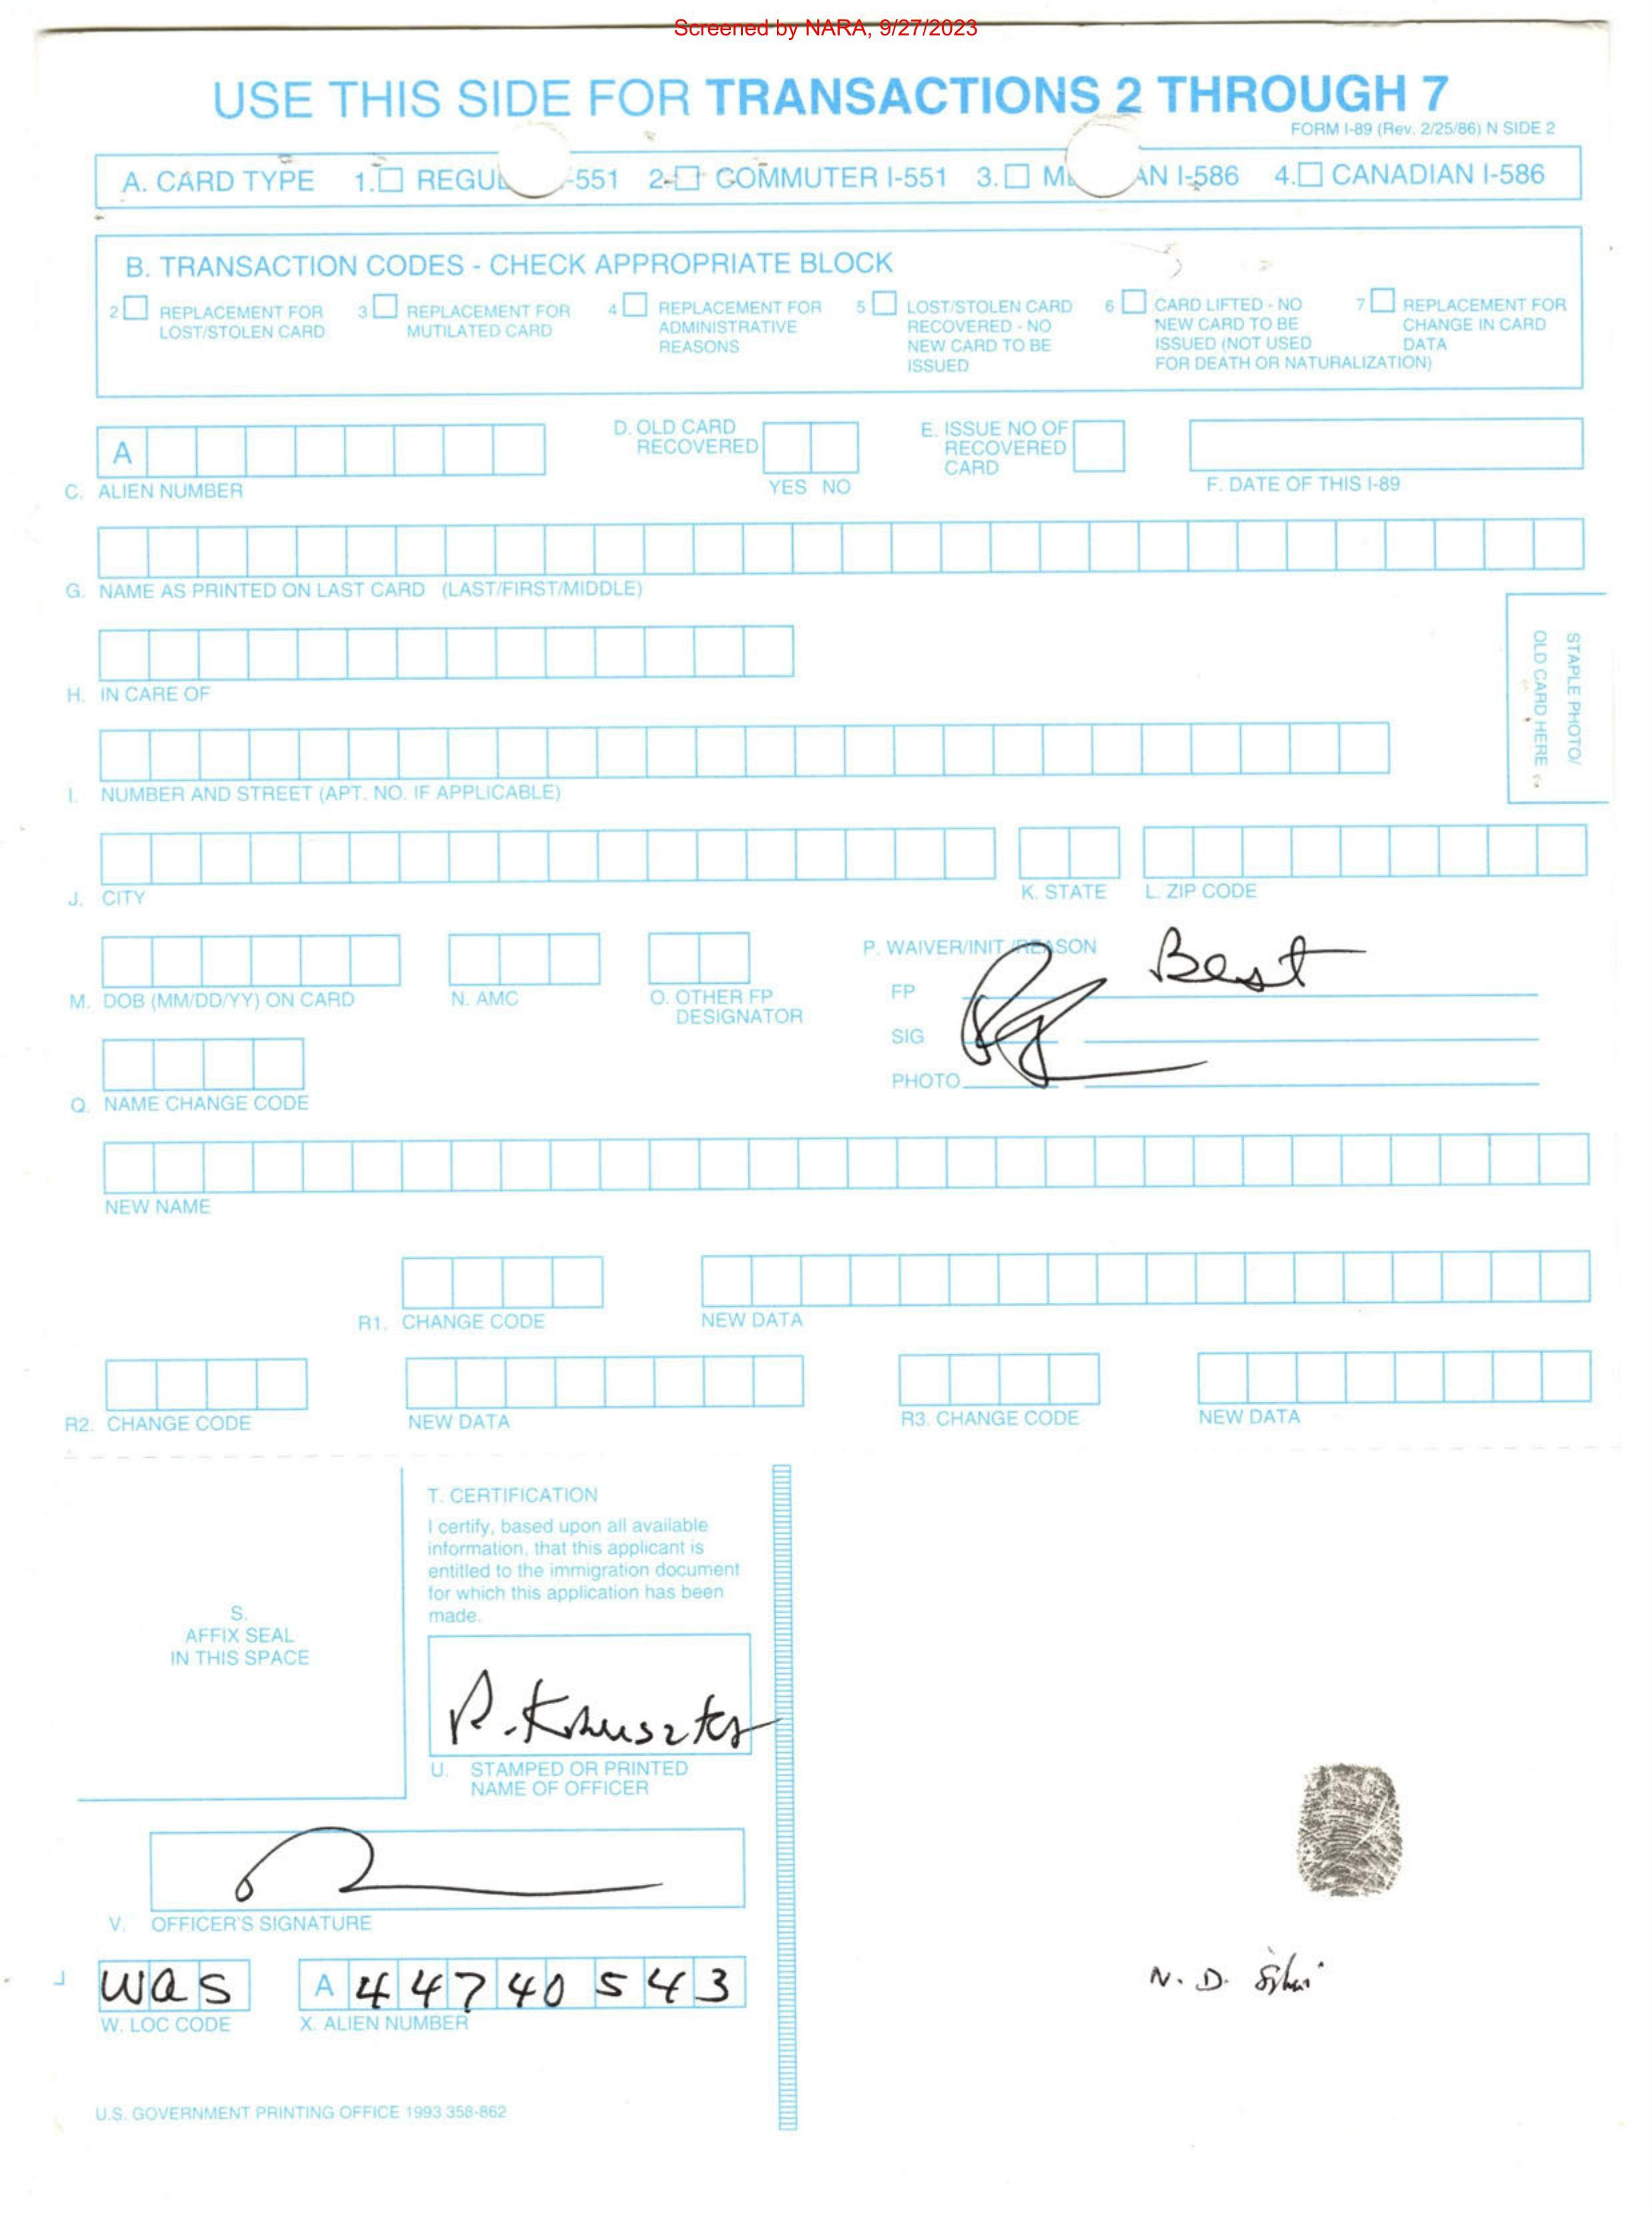 Screened by NARA, 9/27/2023
USE THIS SIDE FOR TRANSACTIONS 2 THROUGH 7
FORM I-89 (Rev. 2/25/86) N SIDE 2
A. CARD TYPE 1. REGUL -551 2. COMMUTER I-551 3. M AN I-586 4. CANADIAN I-586
B. TRANSACTION CODES - CHECK APPROPRIATE BLOCK
2 REPLACEMENT FOR LOST/STOLEN CARD
3 REPLACEMENT FOR MUTILATED CARD
4 REPLACEMENT FOR ADMINISTRATIVE REASONS
5 LOST/STOLEN CARD RECOVERED - NO NEW CARD TO BE ISSUED
6 CARD LIFTED - NO NEW CARD TO BE ISSUED (NOT USED FOR DEATH OR NATURALIZATION)
7 REPLACEMENT FOR CHANGE IN CARD DATA
A
C. ALIEN NUMBER
D. OLD CARD RECOVERED
YES NO
E. ISSUE NO OF RECOVERED CARD
F. DATE OF THIS I-89
G. NAME AS PRINTED ON LAST CARD (LAST/FIRST/MIDDLE)
STAPLE PHOTO/
OLD CARD HERE
H. IN CARE OF
I. NUMBER AND STREET (APT. NO. IF APPLICABLE)
J. CITY
K. STATE
L. ZIP CODE
M. DOB (MM/DD/YY) ON CARD
N. AMC
O. OTHER FP DESIGNATOR
P. WAIVER/INIT/REASON
Best
FP
SIG
PHOTO
Q. NAME CHANGE CODE
NEW NAME
R1. CHANGE CODE
NEW DATA
R2. CHANGE CODE
NEW DATA
R3. CHANGE CODE
NEW DATA
S.
AFFIX SEAL
IN THIS SPACE
T. CERTIFICATION
I certify, based upon all available
information, that this applicant is
entitled to the immigration document
for which this application has been
made.
U. STAMPED OR PRINTED
NAME OF OFFICER
V. OFFICER'S SIGNATURE
was
W. LOC CODE
A 44740543
X. ALIEN NUMBER
N. D.
U.S. GOVERNMENT PRINTING OFFICE 1993 358-862